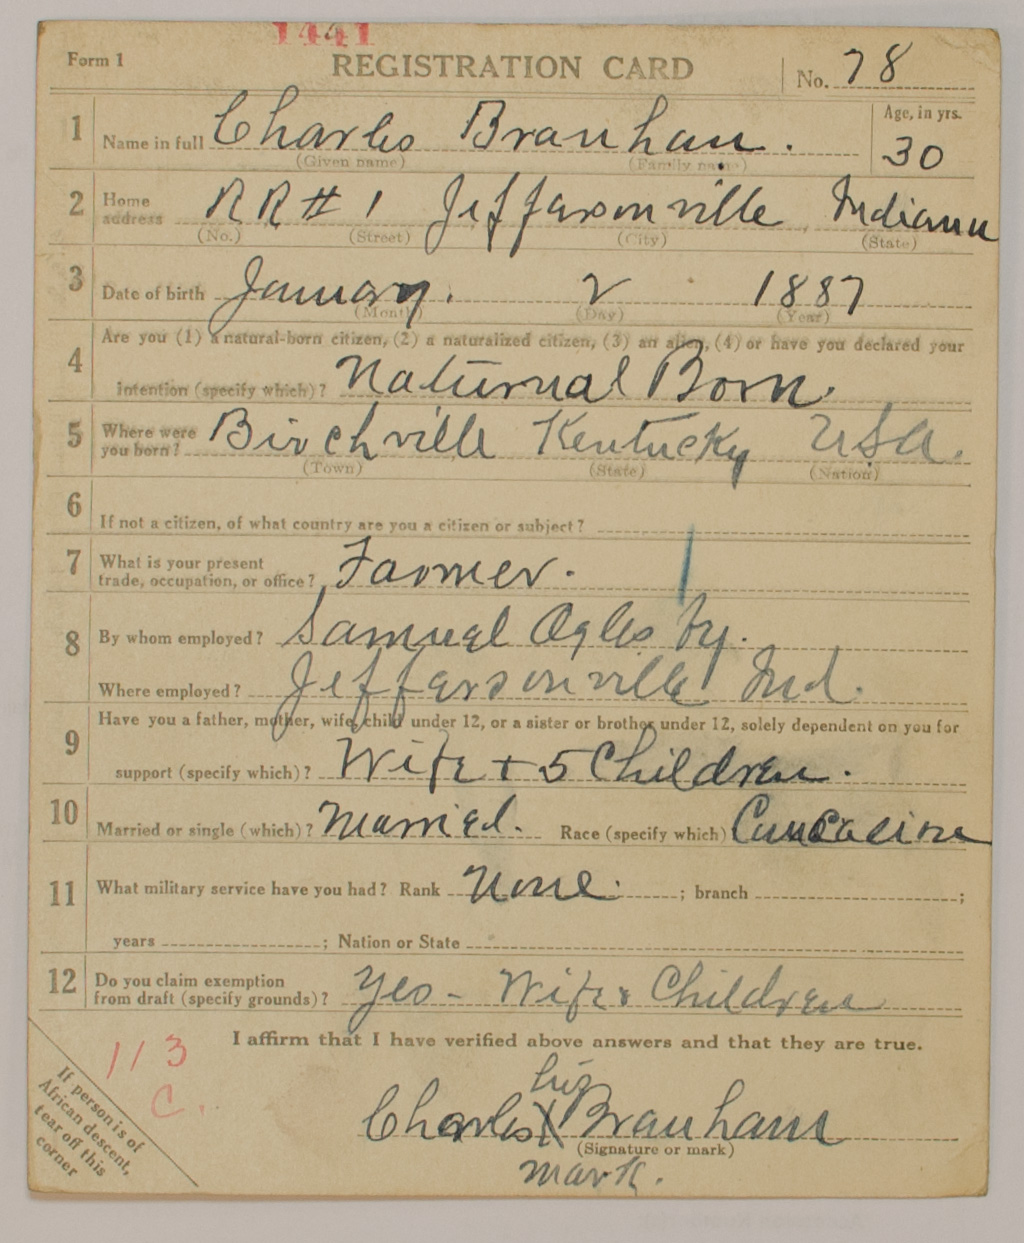 1441
Form 1 REGISTRATION CARD No. 78
1 Name in full Charles Branham. Age, in yrs.
(Given name) (Family name) 30
2 Home address RR # 1 Jeffersonville Indiana
(No.) (Street) (City) (State)
3 Date of birth January. 2 1887
(Month) (Day) (Year)
4 Are you (1) a natural-born citizen, (2) a naturalized citizen, (3) an alien, (4) or have you declared your
intention (specify which)? Naturual Born.
5 Where were you born? Birchville Kentucky USA.
(Town) (State) (Nation)
6 If not a citizen, of what country are you a citizen or subject?
7 What is your present
trade, occupation, or office? Farmer.
8 By whom employed? Samuel Oglesby.
Where employed? Jeffersonville Ind.
9 Have you a father, mother, wife, child under 12, or a sister or brother under 12, solely dependent on you for
support (specify which)? Wife + 5 Children.
10 Married or single (which)? Married. Race (specify which) Caucasion
11 What military service have you had? Rank None. ; branch ;
years ; Nation or State
12 Do you claim exemption
from draft (specify grounds)? Yes - Wife & Children
I affirm that I have verified above answers and that they are true.
113
C.
If person is of
African descent,
tear off this
corner
his
Charles X Branham
(Signature or mark)
mark.